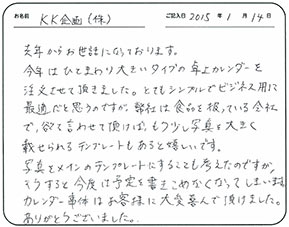 お名前 KK企画(株) ご記入日 2015年1月14日
去年からお世話になっております。
今年はひとまわり大きいタイプの卓上カレンダーを
注文させて頂きました。とてもシンプルでビジネス用に
最適だと思うのですが、弊社は食品を扱っている会社
で、欲を言わせて頂けば、もう少し写真を大きく
載せられるテンプレートもあると嬉しいです。
写真をメインのテンプレートにすることも考えたのですが、
そうすると今度は予定を書きこめなくなってしまいます。
カレンダー事体はお客様に大変喜んで頂けました。
ありがとうございました。